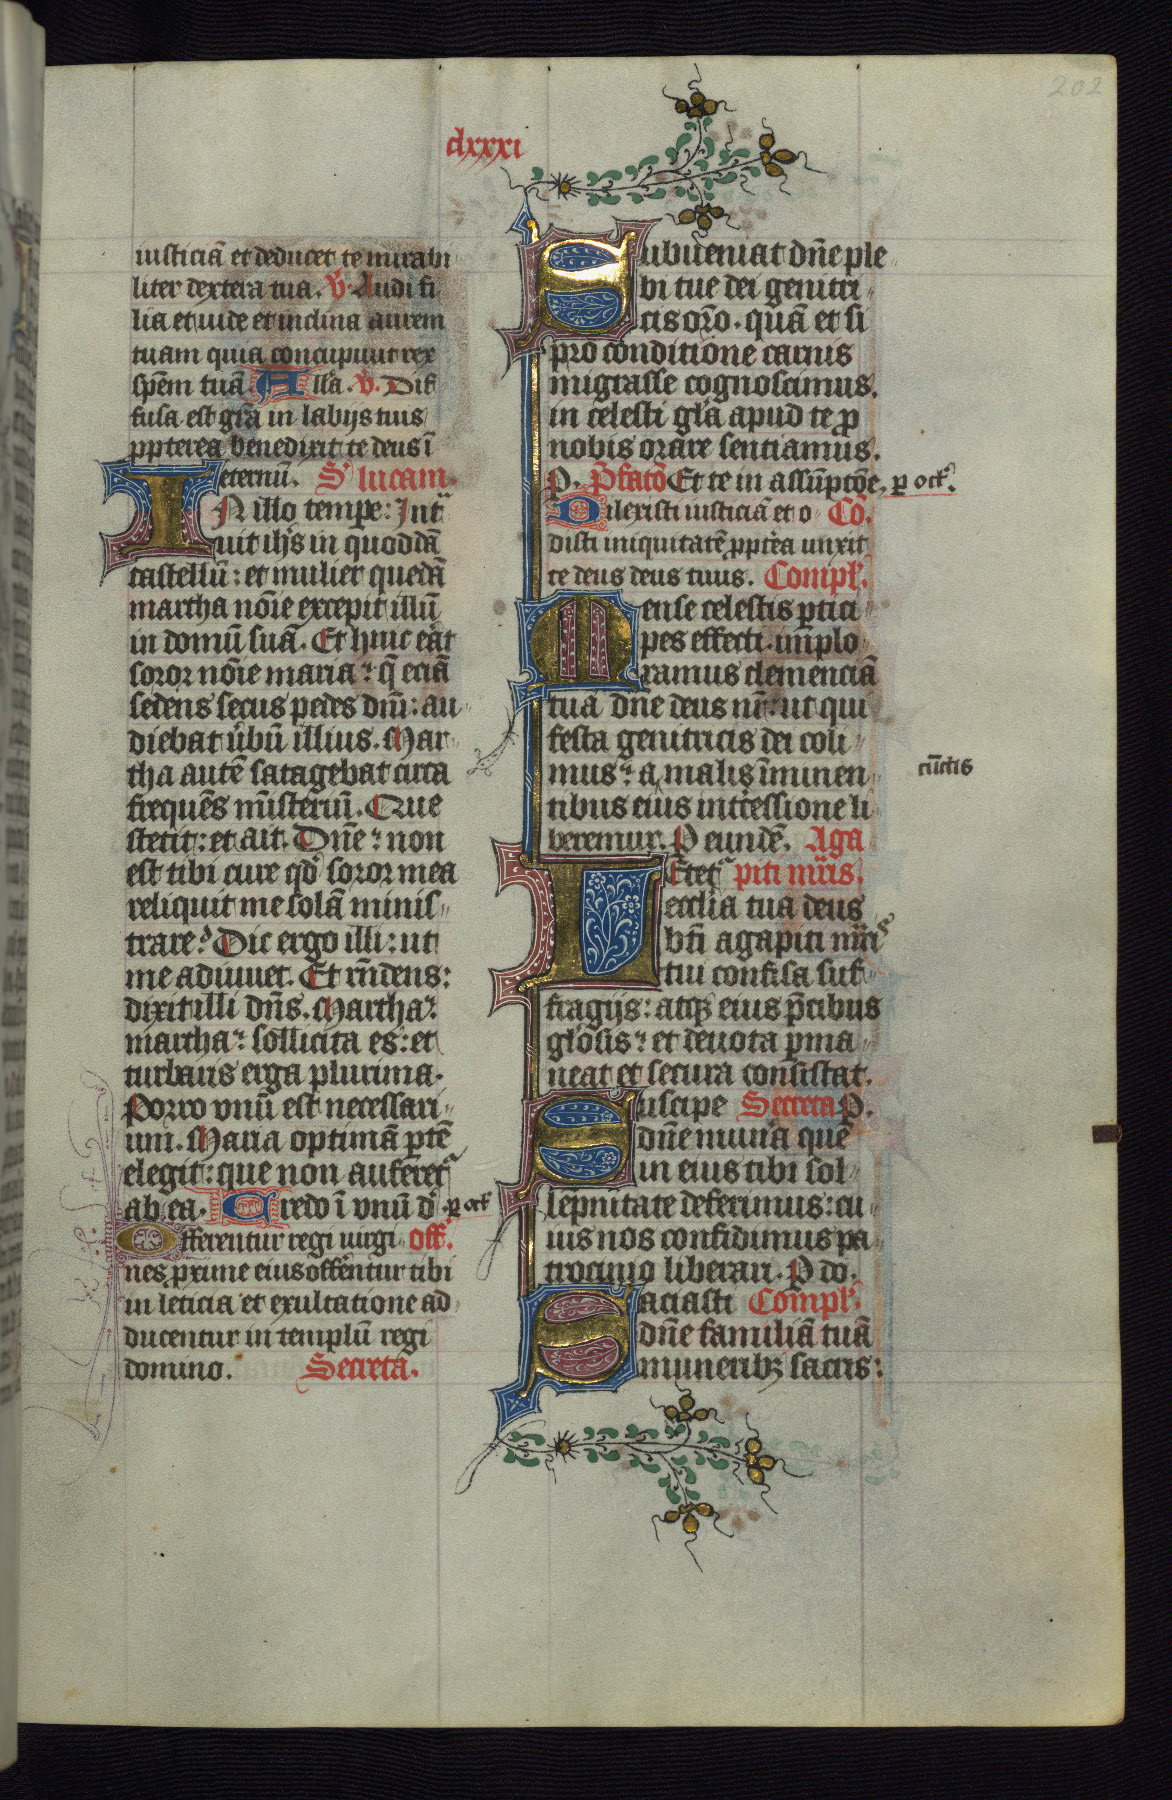 202
clxxxi
iusticiā et deducet te mirabi
liter dextera tua. v̄. Audi fi
lia et uide et inclina aurem
tuam quia concupiuit rex
spēm tuā. Alla. v̄. Dif
fusa est grā in labijs tuis
ppterea benedixit te deus ī
eternū. S. lucam.
IN illo tempe: Int
uit ihs in quoddā
castellū: et mulier quedā
martha noīe excepit illū
in domū suā. Et huic eāt
soror noīe maria: q̄ eciā
sedens secus pedes dnī: au
diebat ūbū illius. Mar
tha autē satagebat circa
frequēs mīsteriū. Que
stetit: et ait. Dnē: non
est tibi cure qd soror mea
reliquit me solā minis
trare? Dic ergo illi: ut
me adiuuet. Et rn̄dens:
dixit illi dns. Martha:
martha: sollicita es: et
turbaris erga plurima.
Porro vnū est necessari
um. Maria optimā ptē
elegit: que non auferet
ab ea. Credo ī vnū d. p oct
Offerentur regi uirgi off.
nes proxime eius offentur tibi
in leticia et exultatione ad
ducentur in templū regi
domino. Secreta.
Subueniat dnē ple
bi tue dei genitri
cis orō. quā et si
pro conditione carnis
migrasse cognoscimus.
in celesti glā apud te p
nobis orare sentiamus.
P. Pfatō Et te in assūptōe. p oct.
Dilexisti iusticiā et o Cō.
disti iniquitatē pptea unxit
te deus deus tuus. Compl.
Mense celestis ptici
pes effecti. implo
ramus clemenciā
tuā dnē deus nr: ut qui
festa genitricis dei coli
mus: a malis īminen
cūctis
tibus eius intcessione li
beremur. P eundē. Aga
Letet piti mris.
ecclia tua deus
bti agapiti mri
tui confisa suf
fragijs: atqz eius pcibus
glosis: et deuota pma
neat et secura consistat.
Suscipe Secreta P.
dnē munera que
in eius tibi sol
lēpnitate deferimus: cu
ius nos confidimus pa
trocinio liberari. P do.
Saciasti Compl.
dnē familiā tuā
muneribz sacris: